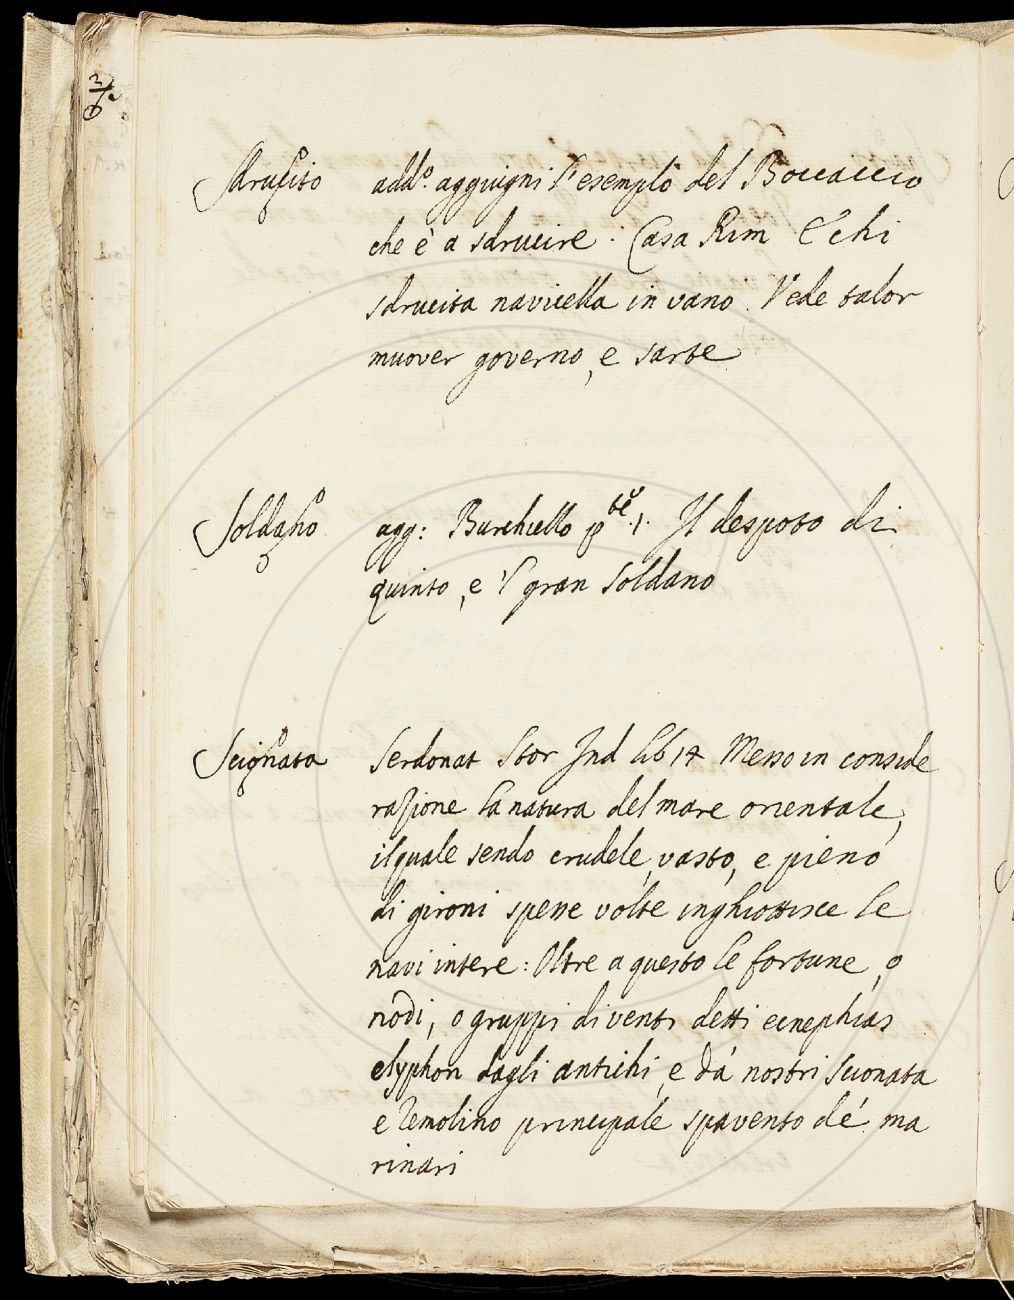 Sdrucito addo. aggiugni l'esemplo del Boccaccio
che è a sdrucire. Casa Rim E chi
sdrucita navicella in vano Vede talor
muover governo, e sarte
Soldano agg: Burchiello pte. 1. Il despoto di
quinto, e 'l gran soldano
Scionata Serdonat Stor Ind lib 14 Messo in conside
razione la natura del mare orientale,
ilquale sendo crudele, vasto, e pieno
di gironi spesse volte inghiottisce le
navi intere: Oltre a questo le fortune, o
nodi, o gruppi di venti detti ecnephias
etyphon dagli antichi, e da' nostri scionata
e Remolino principale spavento de' ma
rinari